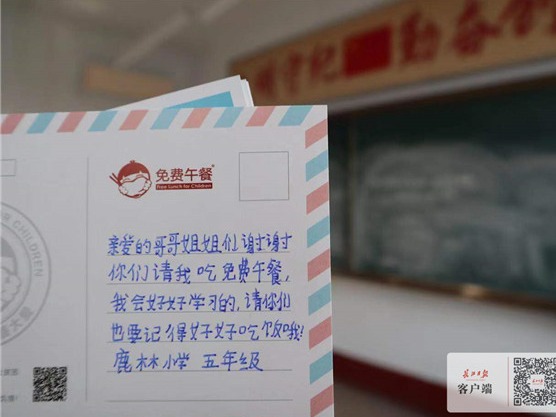 明守纪 勤奋
免费午餐
Free Lunch for Children
亲爱的哥哥姐姐们谢谢
你们请我吃免费午餐,
我会好好学习的,请你们
也要记得好好吃饭哦!
鹿林小学 五年级
CHILDREN
长江日报
客户端